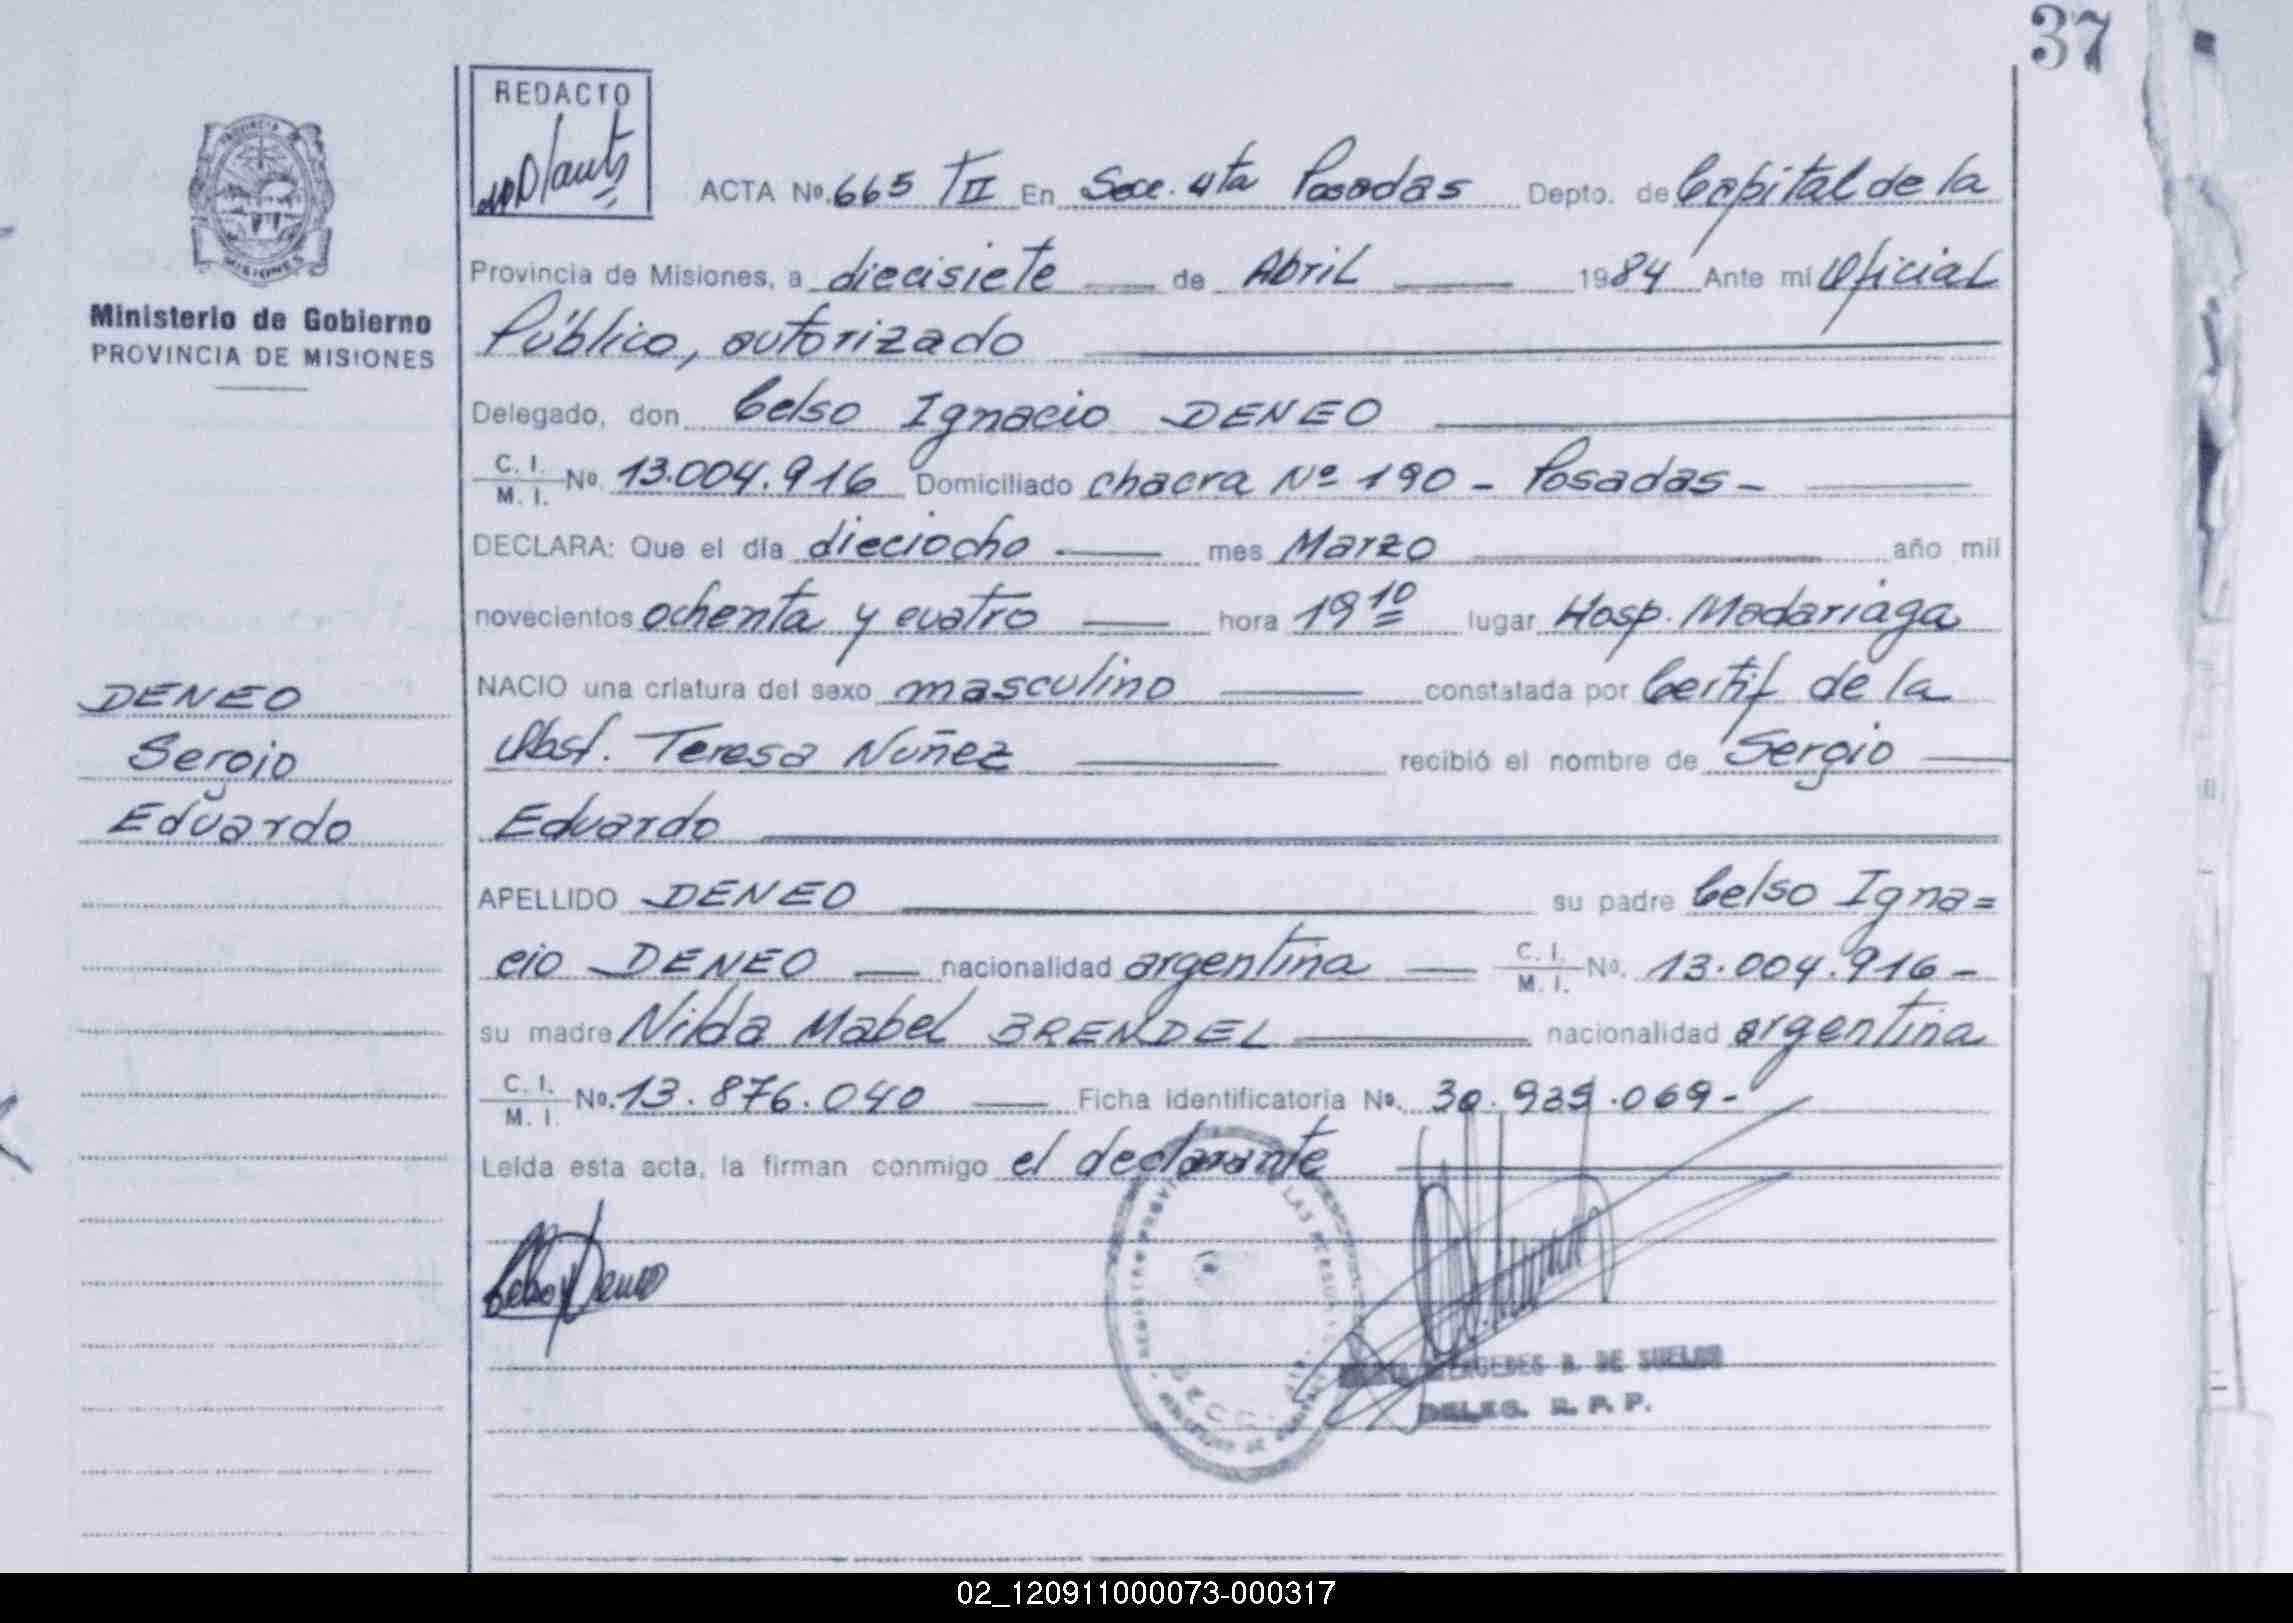 37
REDACTO
ACTA Nº. 665 TII En Secc. 4ta Posadas Depto. de Capital de la
PROVINCIA
MISIONES
Provincia de Misiones, a diecisiete de Abril 1984 Ante mí Oficial
Ministerio de Gobierno
PROVINCIA DE MISIONES
Público, autorizado
Delegado, don Celso Ignacio DENEO
C. I. / M. I. Nº 13.004.916 Domiciliado chacra Nº 190 - Posadas -
DECLARA: Que el día dieciocho mes Marzo año mil
novecientos ochenta y cuatro hora 19 10 lugar Hosp. Madariaga
DENEO
NACIO una criatura del sexo masculino constatada por Certif de la
Sergio
Obst. Teresa Nuñez recibió el nombre de Sergio
Eduardo
Eduardo
APELLIDO DENEO su padre Celso Igna=
cio DENEO nacionalidad argentina C. I. / M. I. Nº. 13.004.916-
su madre Nilda Mabel BRENDEL nacionalidad argentina
C. I. / M. I. Nº. 13.876.040 Ficha identificatoria Nº. 30.939.069-
Leída esta acta, la firman conmigo el declarante
MERCEDES B. DE SUELDO
DELEG. R. P. P.
02_120911000073-000317